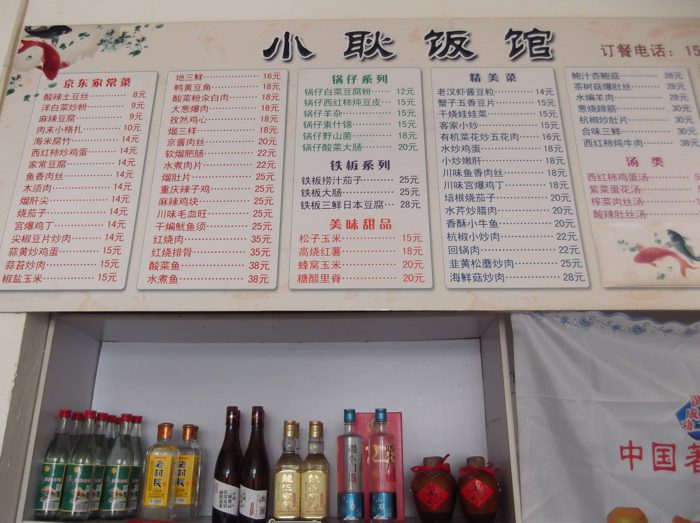 小耿饭馆
订餐电话：15
京东家常菜
酸辣土豆丝 8元
洋白菜炒粉 9元
麻辣豆腐 9元
肉末小格扎 10元
海米腐竹 14元
西红柿炒鸡蛋 14元
家常豆腐 14元
鱼香肉丝 14元
木须肉 14元
熘肝尖 14元
烧茄子 14元
宫爆鸡丁 14元
尖椒豆片炒肉 14元
蒜黄炒鸡蛋 15元
蒜苔炒肉 15元
椒盐玉米 15元
地三鲜 16元
鹌黄豆角 18元
酸菜粉汆白肉 18元
大葱爆肉 18元
孜然鸡心 18元
熘三样 18元
京酱肉丝 20元
软熘肥肠 22元
水煮肉片 22元
熘肚片 22元
重庆辣子鸡 25元
麻辣鸡块 25元
川味毛血旺 25元
干煸鱿鱼须 25元
红烧肉 35元
红烧排骨 35元
酸菜鱼 38元
水煮鱼 38元
锅仔系列
锅仔白菜豆腐粉 12元
锅仔西红柿炖豆皮 15元
锅仔羊杂 15元
锅仔素什锦 15元
锅仔野山菌 18元
锅仔酸菜大肠 20元
铁板系列
铁板捞汁茄子 20元
铁板大肠 25元
铁板三鲜日本豆腐 28元
美味甜品
松子玉米 15元
高烧红薯 18元
蜂窝玉米 20元
糖醋里脊 20元
精美菜
老汉虾酱豆粒 14元
蟹子五香豆片 15元
干烧娃娃菜 15元
客家小炒 15元
有机菜花炒五花肉 16元
水炒鸡蛋 18元
小炒嫩肝 18元
川味鱼香肉丝 18元
川味宫爆鸡丁 18元
培根烧茄子 20元
水芹炒腊肉 20元
香酥小牛鱼 20元
杭椒小炒肉 22元
回锅肉 22元
韭黄松蘑炒肉 25元
海鲜菇炒肉 28元
鲍汁杏鲍菇 28元
茶树菇爆肚丝 28元
水煸羊肉 28元
葱烧蹄筋 30元
杭椒炒肚片 30元
合味三鲜 30元
西红柿炖牛肉 38元
汤类
西红柿鸡蛋汤 5元
紫菜蛋花汤 5元
榨菜肉丝汤 5元
酸辣肚丝汤 5元
老村长
中国